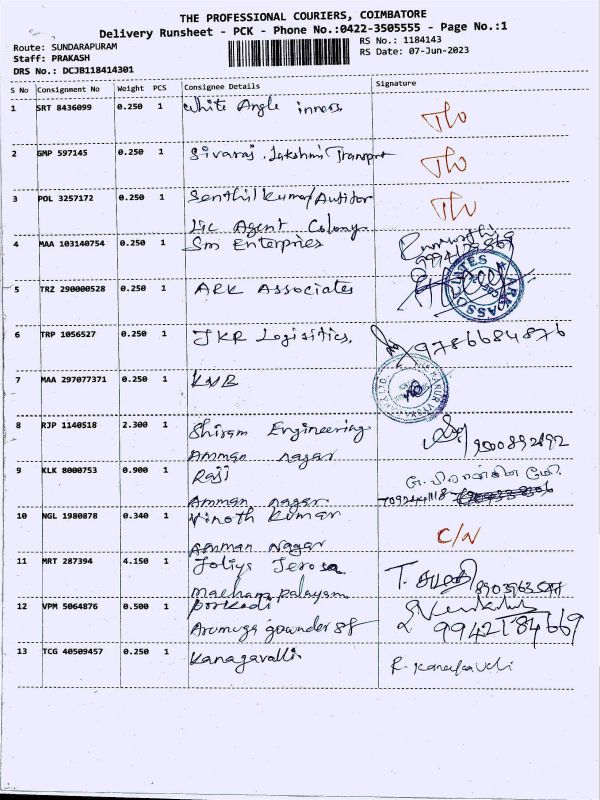 THE PROFESSIONAL COURIERS, COIMBATORE
Delivery Runsheet - PCK - Phone No.:0422-3505555 - Page No.:1
Route: SUNDARAPURAM
RS No.: 1184143
Staff: PRAKASH
RS Date: 07-Jun-2023
DRS No.: DCJB118414301
S No Consignment No Weight PCS Consignee Details Signature
1 SRT 8436099 0.250 1 White Angle inners
2 GMP 597145 0.250 1 Sivaraj. Lakshmi Transport
3 POL 3257172 0.250 1 Senthil kumar/Auditor
Lic Agent Colony
4 MAA 103140754 0.250 1 Sm Enterpries
5 TRZ 290000528 0.250 1 ARK Associates
6 TRP 1056527 0.250 1 JKR Logisitics. 9786684876
7 MAA 297077371 0.250 1 KVB
8 RJP 1140518 2.300 1 Shiram Engineering
Amman nagar
9 KLK 8000753 0.900 1 Raji
Amman nagar
10 NGL 1980878 0.340 1 Vinoth Kumar C/N
Amman Nagar
11 MRT 287394 4.150 1 Joliya Jerosa
maecham palayam
12 VPM 5064876 0.500 1 porkodi
Arumuga gounder st 9942184669
13 TCG 40509457 0.250 1 Kanagavalli